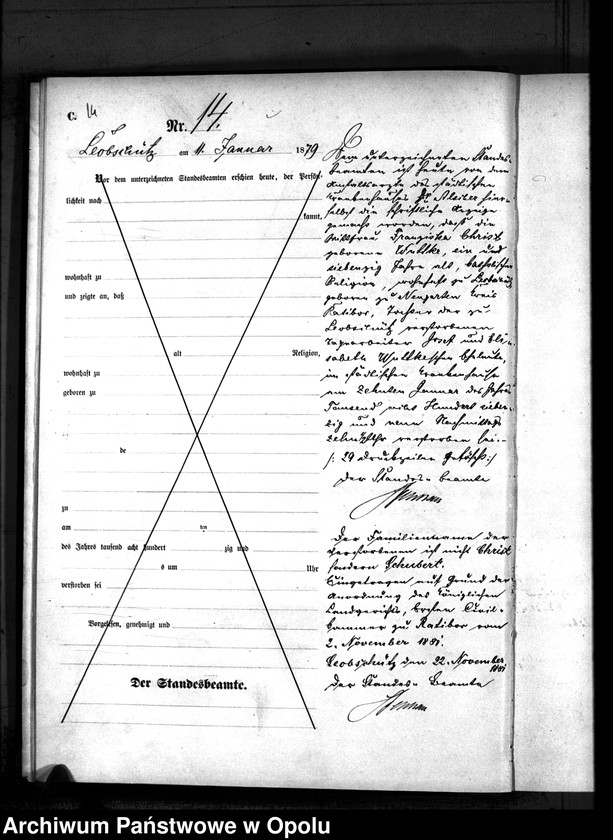 C. 14
Nr. 14.
Leobschütz am 11. Januar 1879
Vor dem unterzeichneten Standesbeamten erschien heute, der Persön-
lichkeit nach
kannt,
wohnhaft zu
und zeigte an, daß
alt Religion,
wohnhaft zu
geboren zu
de
zu
am ten
des Jahres tausend acht hundert zig und
s um Uhr
verstorben sei
Vorgelesen, genehmigt und
Der Standesbeamte.
Dem unterzeichneten Standes-
beamten ist heute von dem
Anstaltsarzte des städtischen
Krankenhauses hier-
selbst die schriftliche Anzeige
gemacht worden, daß die
Franziska Christ
geborene Wuttke, ein und
siebenzig Jahre alt, katholischer
Religion, wohnhaft zu Leobschütz
geboren zu Neugarten Kreis
Ratibor, Tochter der zu
Leobschütz verstorbenen
Josef und Eli-
sabeth Wuttkeschen Eheleute,
im städtischen Krankenhause
am zehnten Januar des Jahres
Tausend acht Hundert sieben-
zig und neun Nachmittags
zehn Uhr verstorben sei.-
/: 29 Druckzeilen gelöscht :/
Der Standes-Beamte
Der Familienname der
Verstorbenen ist nicht Christ
sondern Schubert.
Eingetragen auf Grund der
Anordnung des Königlichen
Landgerichts, Ersten Civil-
kammer zu Ratibor vom
2. November 1881.
Leobschütz den 22. November
1881
Der Standes-Beamte
Archiwum Państwowe w Opolu